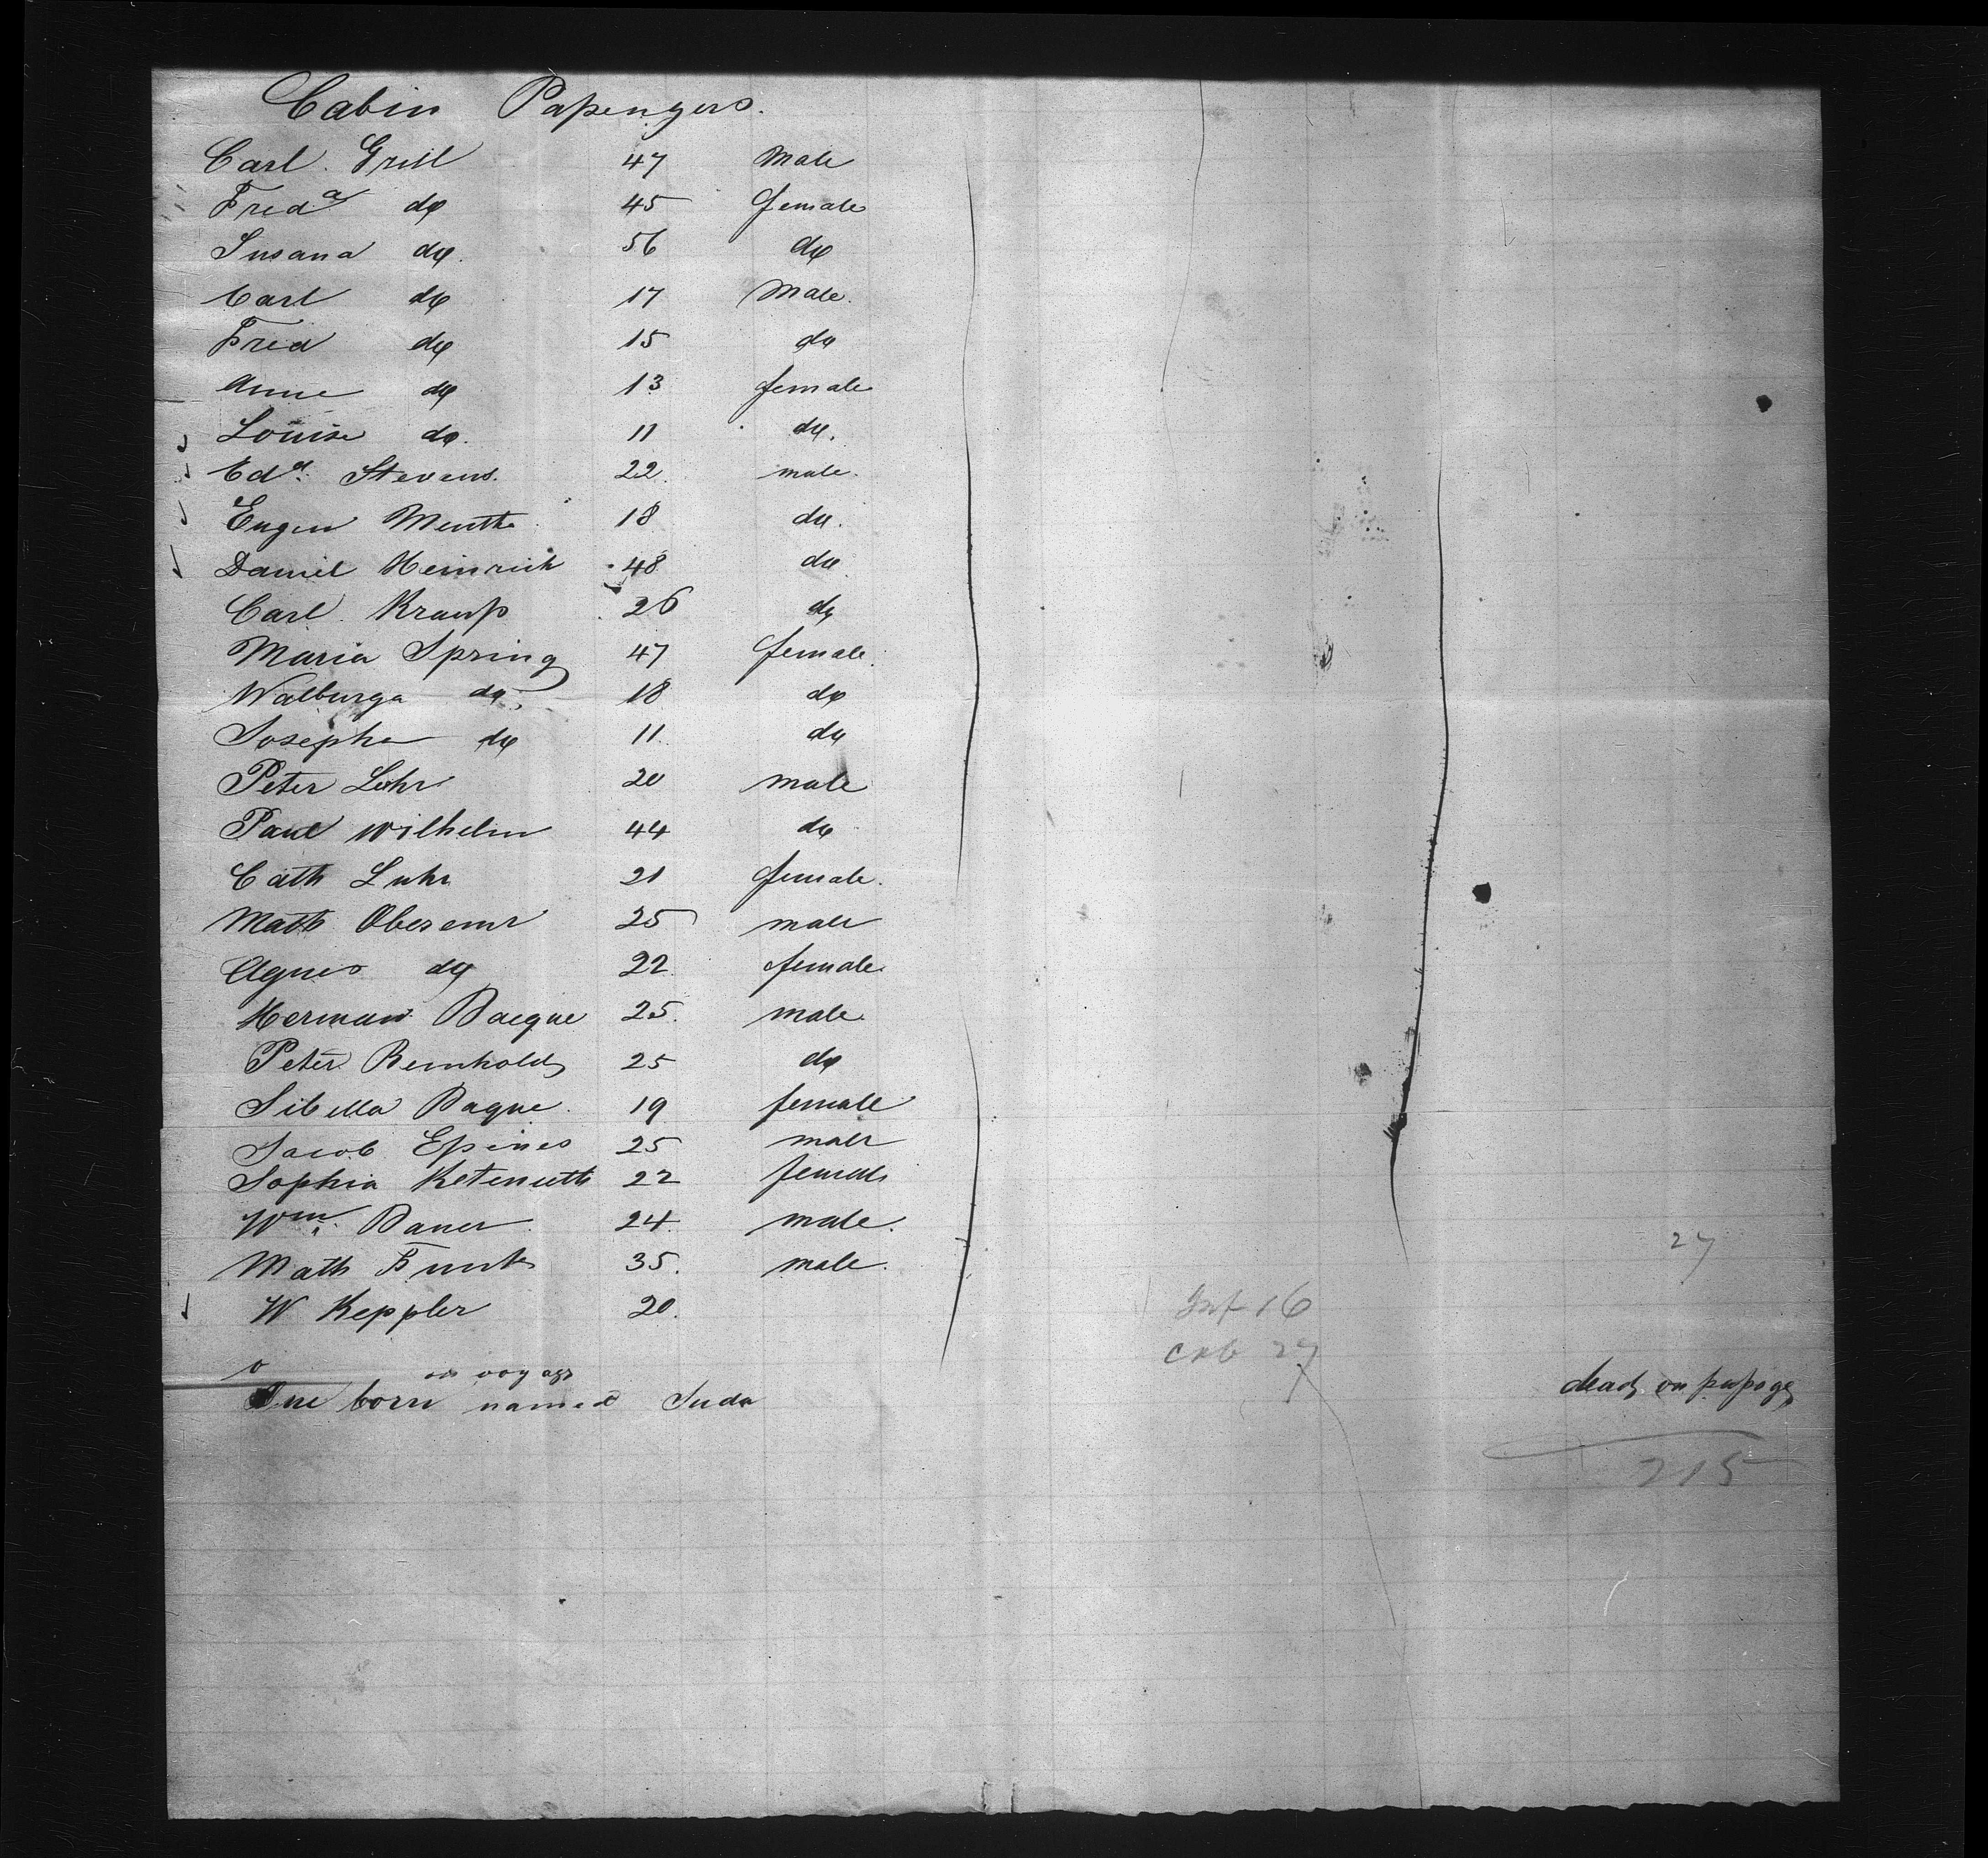 Cabin Passengers.
Carl Grill 47 Male
Fred^a do 45 female
Susana do. 56 do
Carl do 17 Male.
Fred do 15 do
Anne do 13 female
Louise do. 11 do.
Ed^d. Stevens. 22. male.
Eugen Menth 18 do.
Daniel Heinrich 48 do
Carl Krauss 26 do
Maria Spring 47 female.
Walburga do 18 do
Josepha do 11. do
Peter Luhr 20 male
Paul Wilhelm 44 do
Cath Luhr 21 female.
Math Oberemr 25 male
Agnes do 22 female.
Herman Bacque 25. male.
Peter Reinhold 25 do
Sibella Baque. 19 female
Jacob 25 male
Sophia 22 female
Wm. Bauer 24. male.
Math Funk 35. male.
W Keppler 20.
27
Inf 16
Cab 27
on voyage
One born named Juda
dead on passage
215